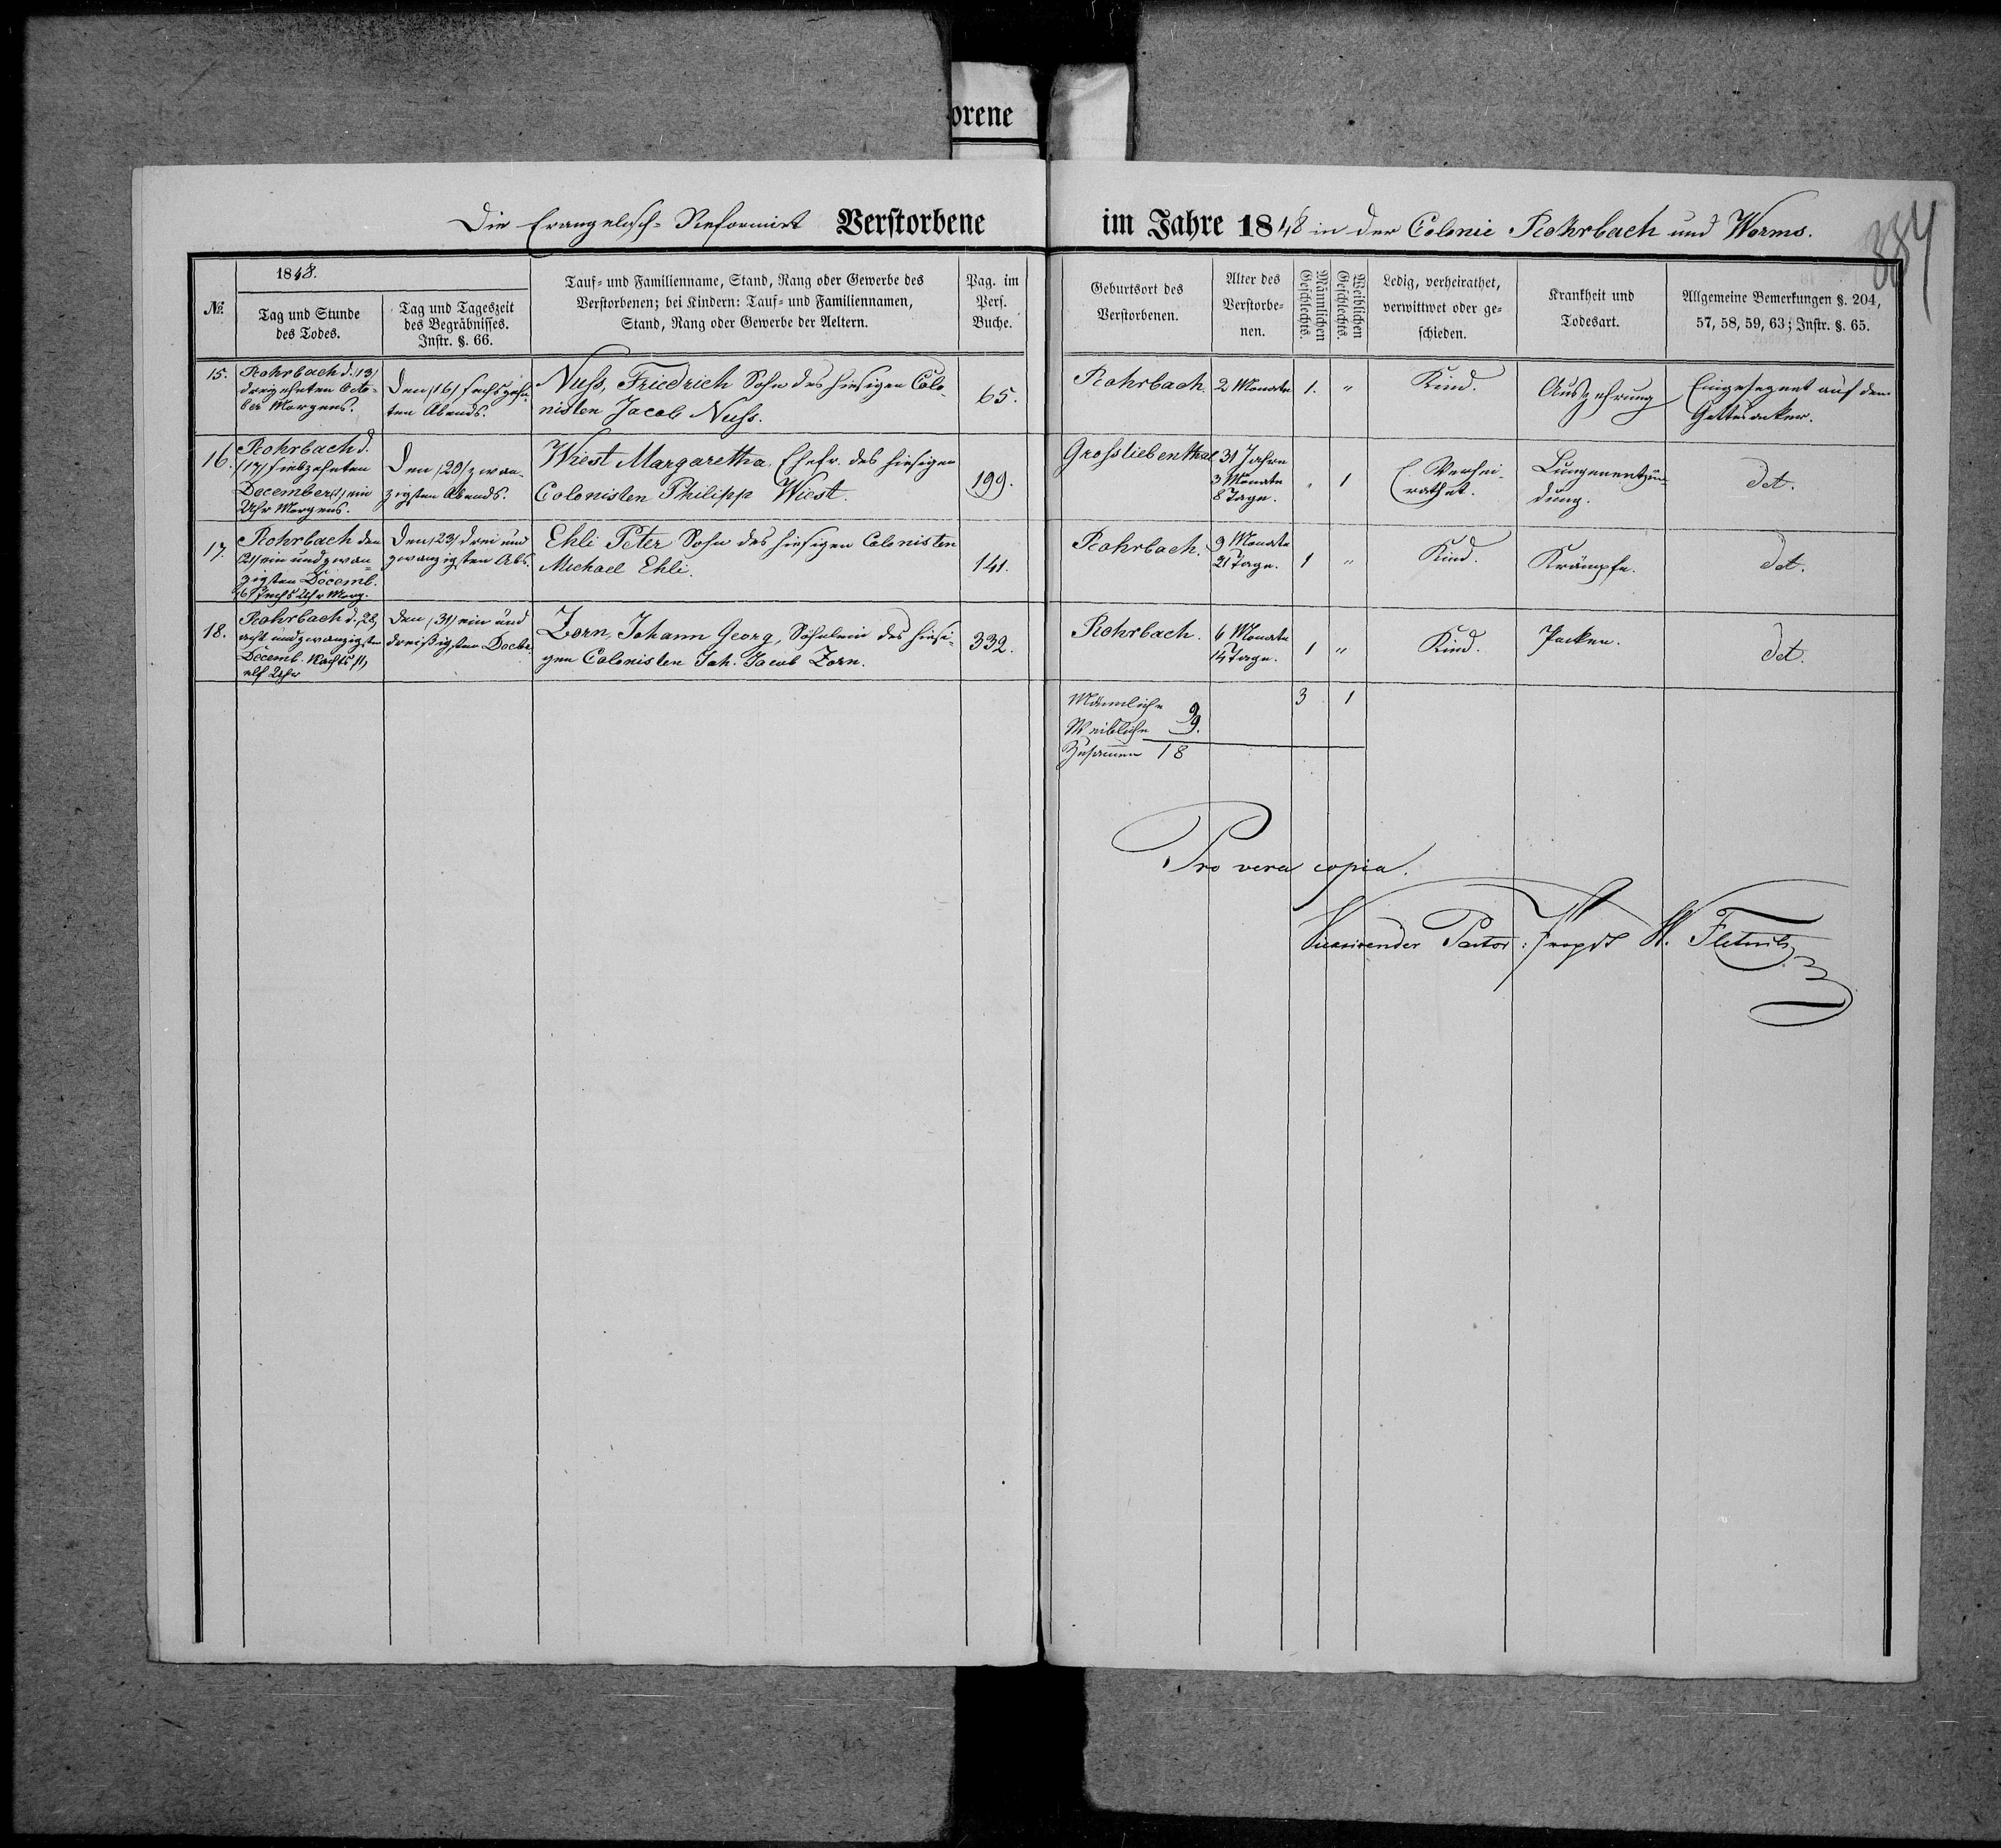 orene
Die Evangelisch-Reformirt Verstorbene im Jahre 1848 in der Colonie Rohrbach und Worms.
384
No.
1848.
Tag und Stunde
des Todes.
Tag und Tageszeit
des Begräbnisses.
Instr. §. 66.
Tauf- und Familienname, Stand, Rang oder Gewerbe des
Verstorbenen; bei Kindern: Tauf- und Familiennamen,
Stand, Rang oder Gewerbe der Aeltern.
Pag. im
Pers.
Buche.
Geburtsort des
Verstorbenen.
Alter des
Verstorbe-
nen.
Männlichen
Geschlechts.
Weiblichen
Geschlechts.
Ledig, verheirathet,
verwittwet oder ge-
schieden.
Krankheit und
Todesart.
Allgemeine Bemerkungen §. 204,
57, 58, 59, 63; Instr. §. 65.
15.
Rohrbach d. /13/
dreizehnten Octo-
ber Morgens.
Den /16/ sechszehn-
ten Abends.
Nuss, Friedrich Sohn des hiesigen Colo-
nisten Jacob Nuss.
65.
Rohrbach.
2 Monate
1.
"
Kind.
Auszehrung
Eingesegnet auf dem
Gottesacker.
16.
Rohrbach d.
/17/ siebzehnten
December /1/ ein
Uhr Morgens.
Den /20/ zwan-
zigsten Abends.
Wiest Margaretha, Ehefr. des hiesigen
Colonisten Philipp Wiest.
199.
Grossliebenthal
31 Jahre
3 Monate
8 Tage.
"
1
Verhei-
rathet.
Lungenentzün-
dung.
det.
17.
Rohrbach den
/21/ ein und zwan-
zigsten Decemb.
/6/ sechs Uhr Morg.
Den /23/ drei und
zwanzigsten Abds.
Ehli Peter Sohn des hiesigen Colonisten
Michael Ehli.
141.
Rohrbach.
9 Monate
21 Tage.
1
"
Kind.
Krämpfe.
det.
18.
Rohrbach d. /28/
acht und zwanzigsten
Decemb. Nachts /11/
elf Uhr
Den /31/ ein und
dreißigsten Decbr.
Zorn, Johann Georg, Söhnlein des hiesi-
gen Colonisten Joh. Jacob Zorn.
332.
Rohrbach.
6 Monate
14 Tage.
1
"
Kind.
Pocken.
det.
Männliche 9
3
1
Weibliche 9.
Zusammen 18
Pro vera copia.
Vicarirender Pastor: Propst W. Fletnitz